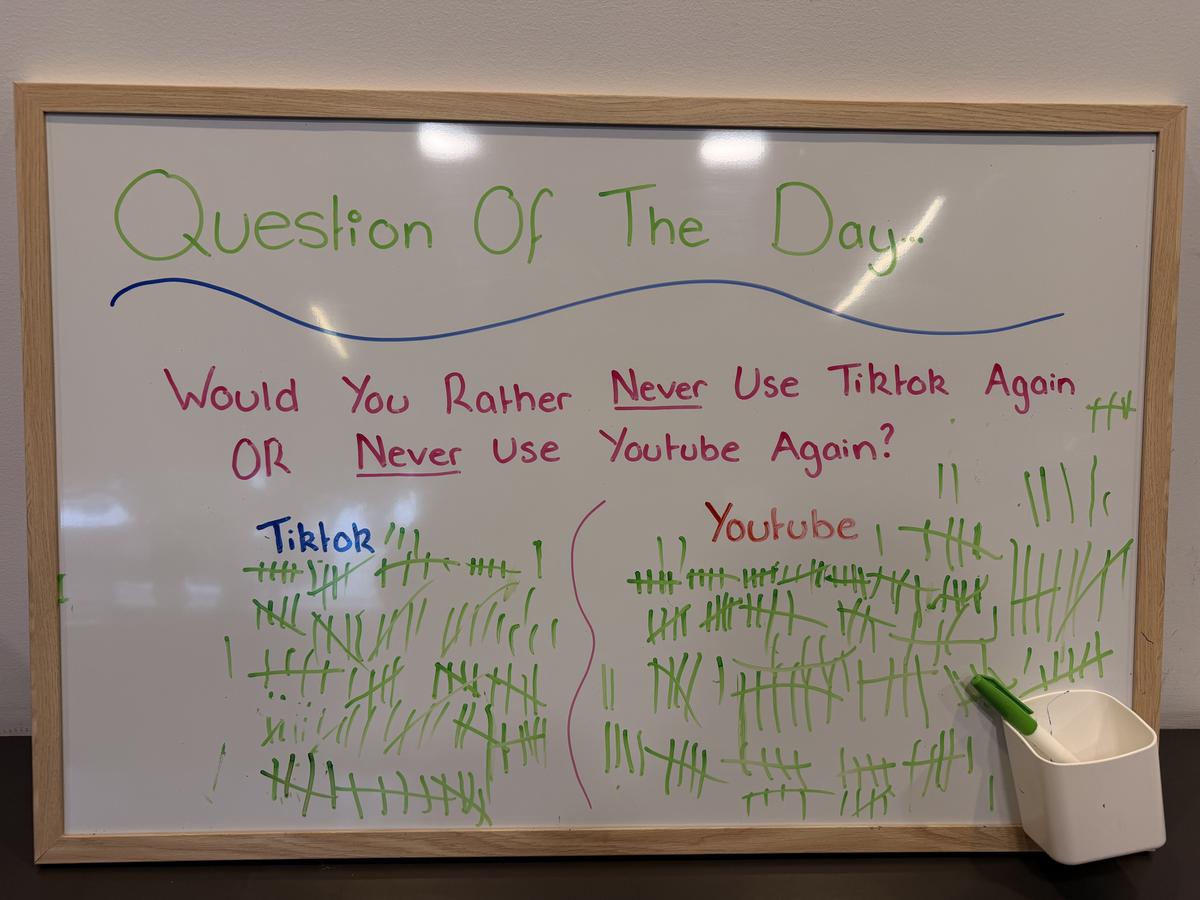 Question Of The Day...
Would You Rather Never Use Tiktok Again
OR Never Use Youtube Again?
Tiktok
Youtube